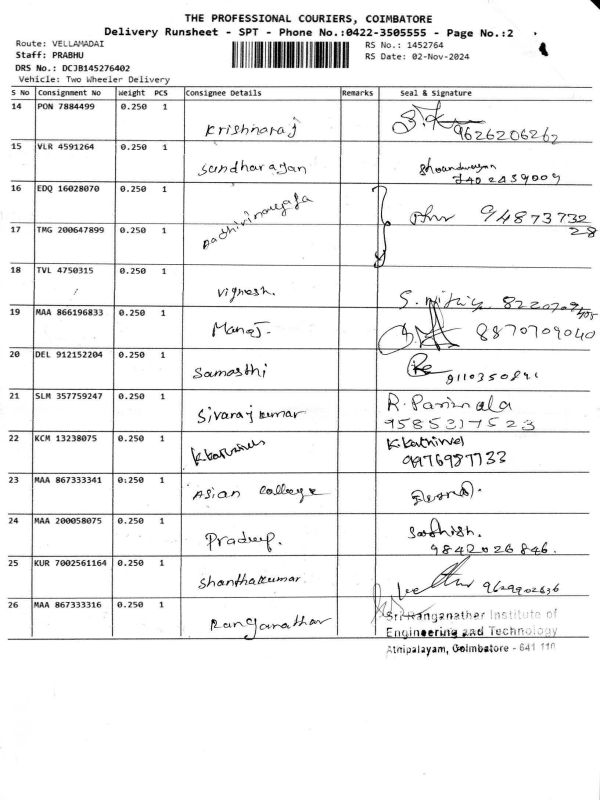 THE PROFESSIONAL COURIERS, COIMBATORE
Delivery Runsheet - SPT - Phone No.:0422-3505555 - Page No.:2
Route: VELLAMADAI
RS No.: 1452764
Staff: PRABHU
RS Date: 02-Nov-2024
DRS No.: DCJB145276402
Vehicle: Two Wheeler Delivery
S No Consignment No Weight PCS Consignee Details Remarks Seal & Signature
14 PON 7884499 0.250 1 Krishnaraj 9626206262
15 VLR 4591264 0.250 1 Sundharajan
16 EDQ 16028070 0.250 1 94873732
17 TMG 200647899 0.250 1 28
18 TVL 4750315 0.250 1 Vignesh.
19 MAA 866196833 0.250 1 Manoj. 8870709040
20 DEL 912152204 0.250 1 Samasthi
21 SLM 357759247 0.250 1 Sivarajkumar R. Parimala
9585317523
22 KCM 13238075 0.250 1 K Kathirvel K Kathirvel
9976987733
23 MAA 867333341 0:250 1 Asian College
24 MAA 200058075 0.250 1 Pradeep. Sathish.
9842026846.
25 KUR 7002561164 0.250 1 Shanthakumar 9629902636
26 MAA 867333316 0.250 1 Ranganathar
Sri Ranganathar Institute of
Engineering and Technology
Athipalayam, Coimbatore - 641 110